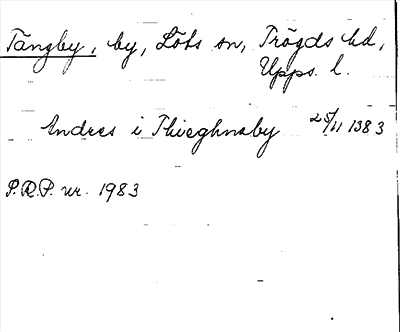 Tängby, by, Löts sn, Trögds hd,
Upps. l.
Andres i Thieghnaby 25/11 1383
P.R.P. nr. 1983